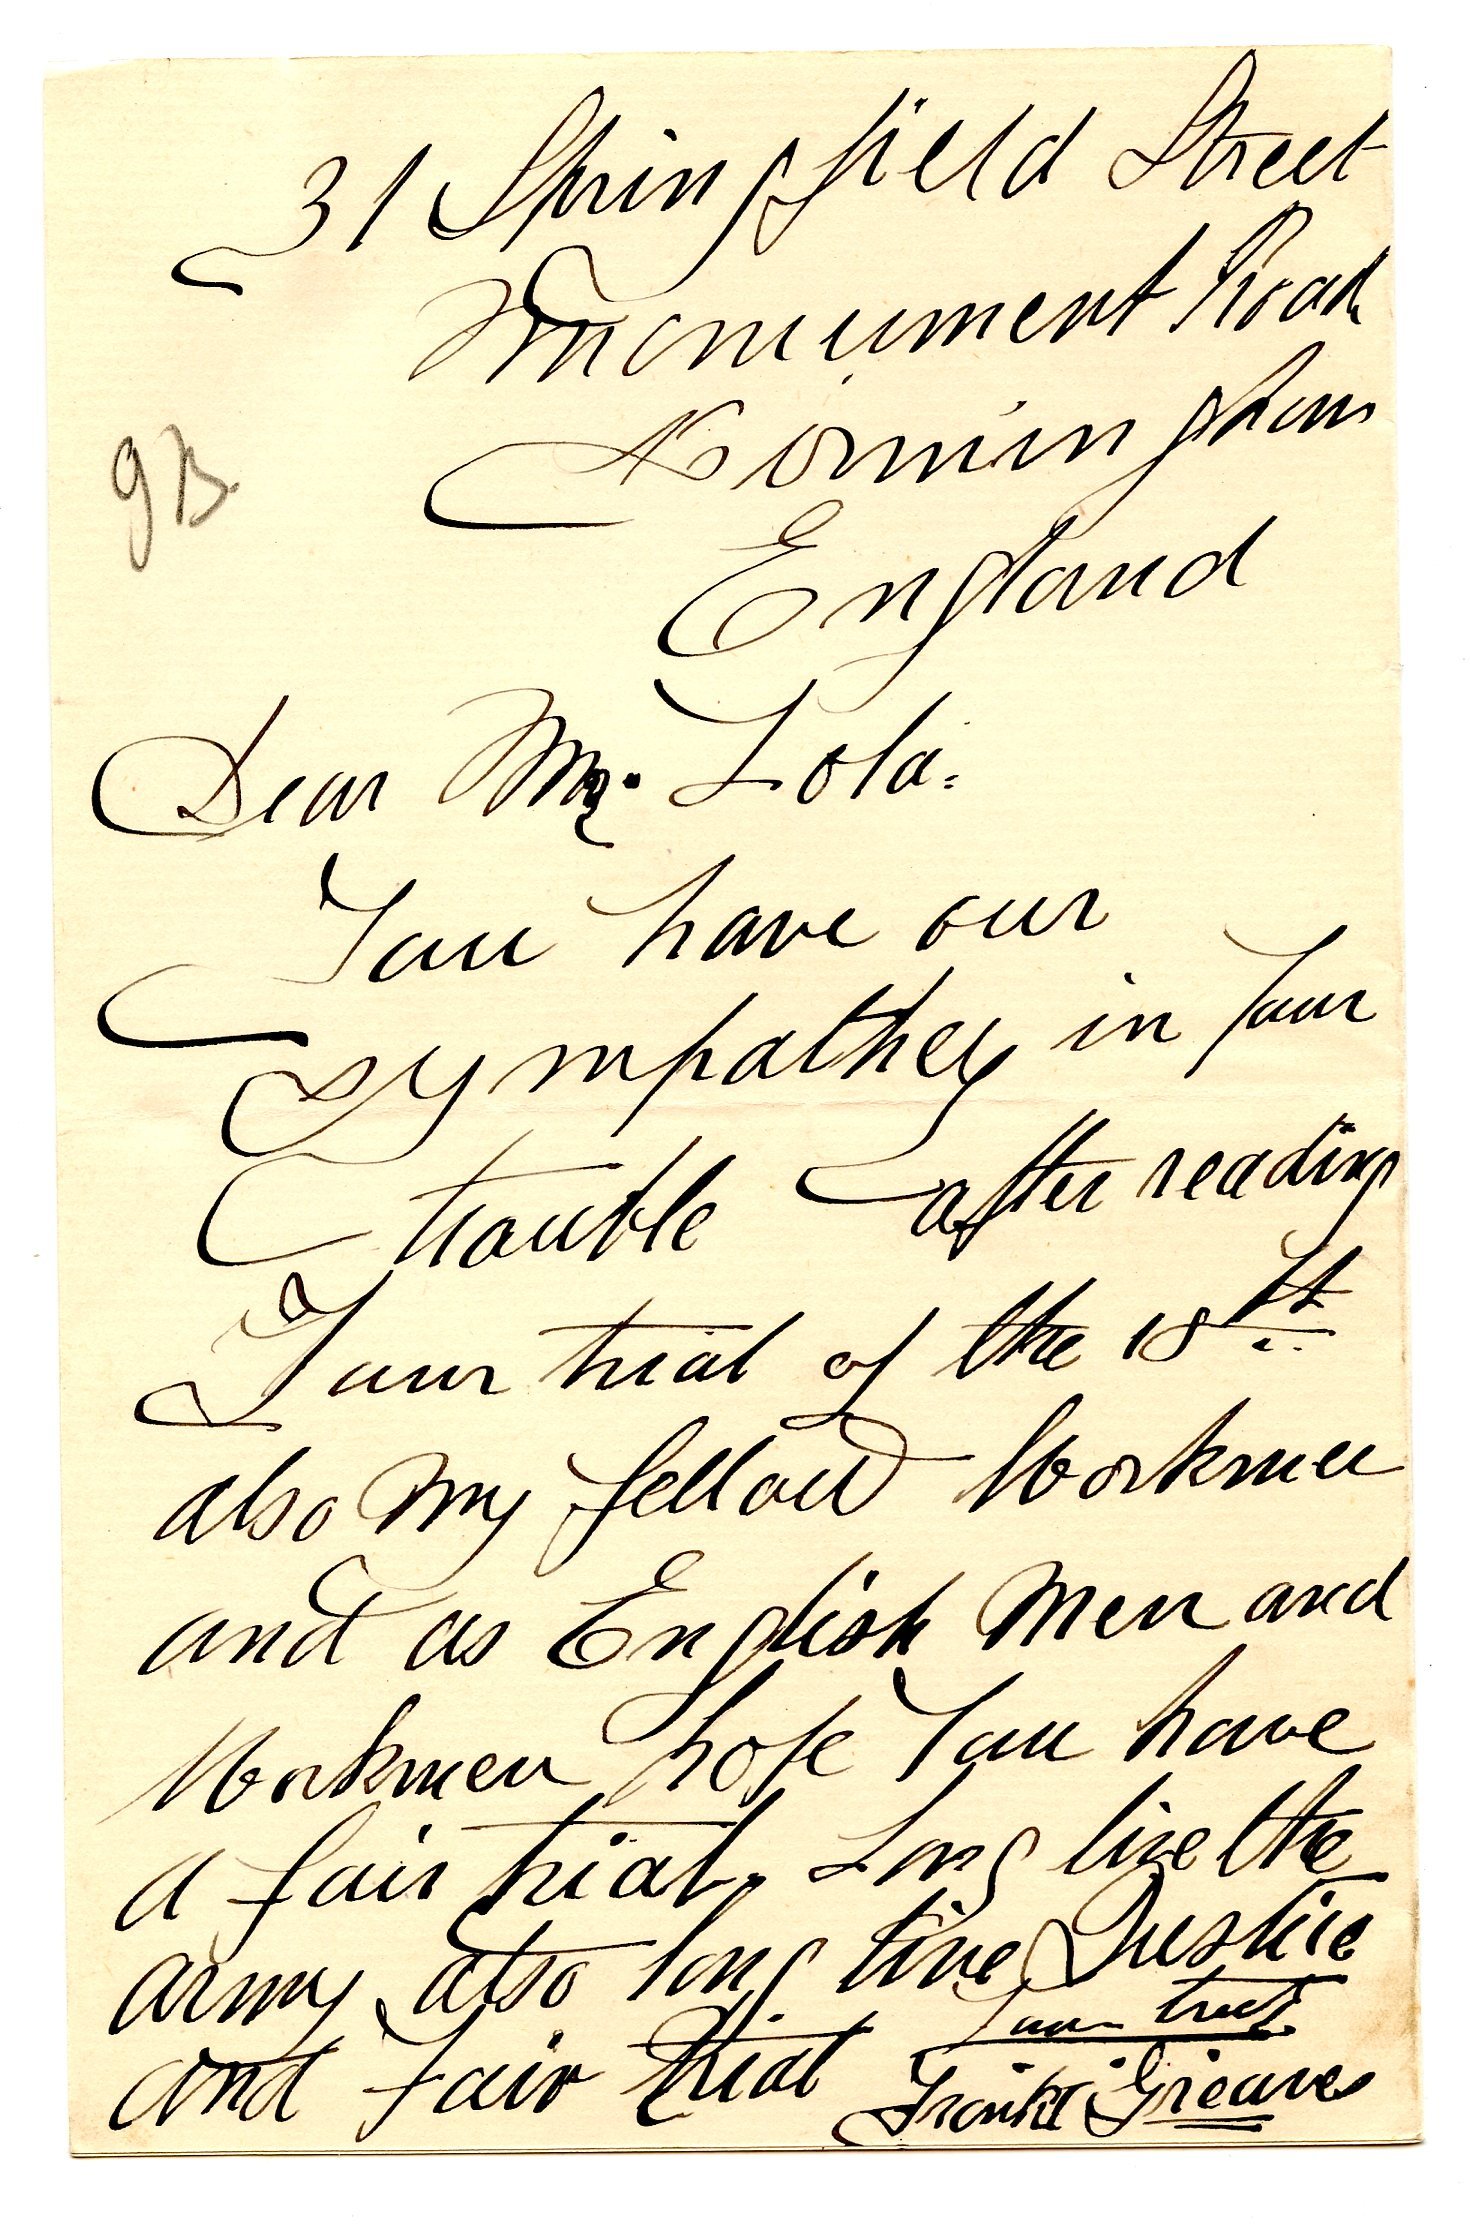 31 Springfield Street
Monument Road
Birmingham
England
GB.
Dear Mr. Zola:
You have our
sympathey in Your
trouble after reading
Your trial of the 18st
also My fellow Workmen
and as English Men and
Workmen hope You have
a fair trial, Long live the
army also long live Justice
and Fair trial Your truly
Frank Greaves